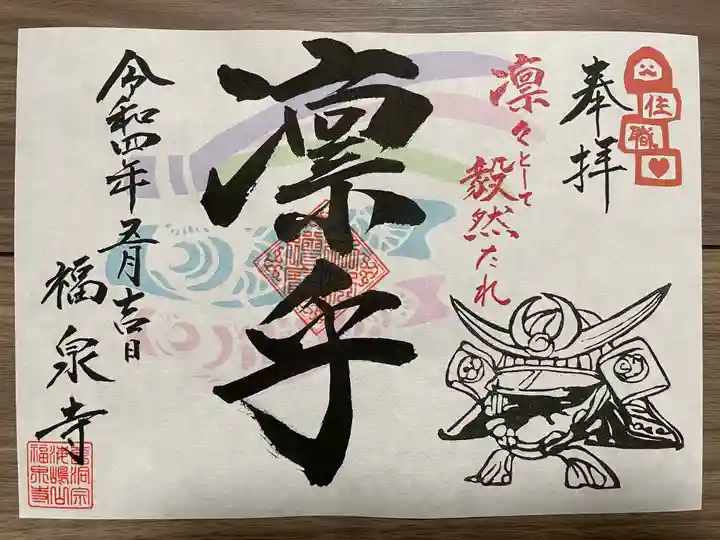 奉拝
住職
凛々として
毅然たれ
凛乎
令和四年 五月吉日
福泉寺
曹洞宗
海嶋山
福泉寺